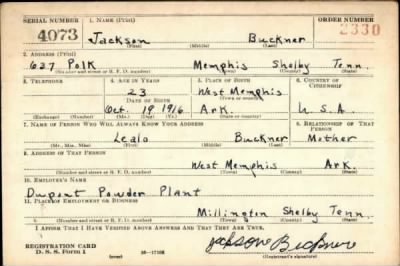 SERIAL NUMBER 1. NAME (Print) ORDER NUMBER
4073 Jackson Buckner 2330
(First) (Middle) (Last)
2. ADDRESS (Print)
627 Polk Memphis Shelby Tenn.
(Number and street or R. F. D. number) (Town) (County) (State)
3. TELEPHONE 4. AGE IN YEARS 5. PLACE OF BIRTH 6. COUNTRY OF CITIZENSHIP
23 West Memphis
DATE OF BIRTH (Town or county)
Oct. 19 1916 Ark. U.S.A.
(Exchange) (Number) (Mo.) (Day) (Yr.) (State or country)
7. NAME OF PERSON WHO WILL ALWAYS KNOW YOUR ADDRESS 8. RELATIONSHIP OF THAT PERSON
Buckner Mother
(Mr., Mrs., Miss) (First) (Middle) (Last)
9. ADDRESS OF THAT PERSON
West Memphis Ark.
(Number and street or R. F. D. number) (Town) (County) (State)
10. EMPLOYER'S NAME
Dupont Powder Plant
11. PLACE OF EMPLOYMENT OR BUSINESS
Millington Shelby Tenn.
(Number and street or R. F. D. number) (Town) (County) (State)
I AFFIRM THAT I HAVE VERIFIED ABOVE ANSWERS AND THAT THEY ARE TRUE.
REGISTRATION CARD Jackson Buckner
D. S. S. Form 1 (over) (Registrant's signature)